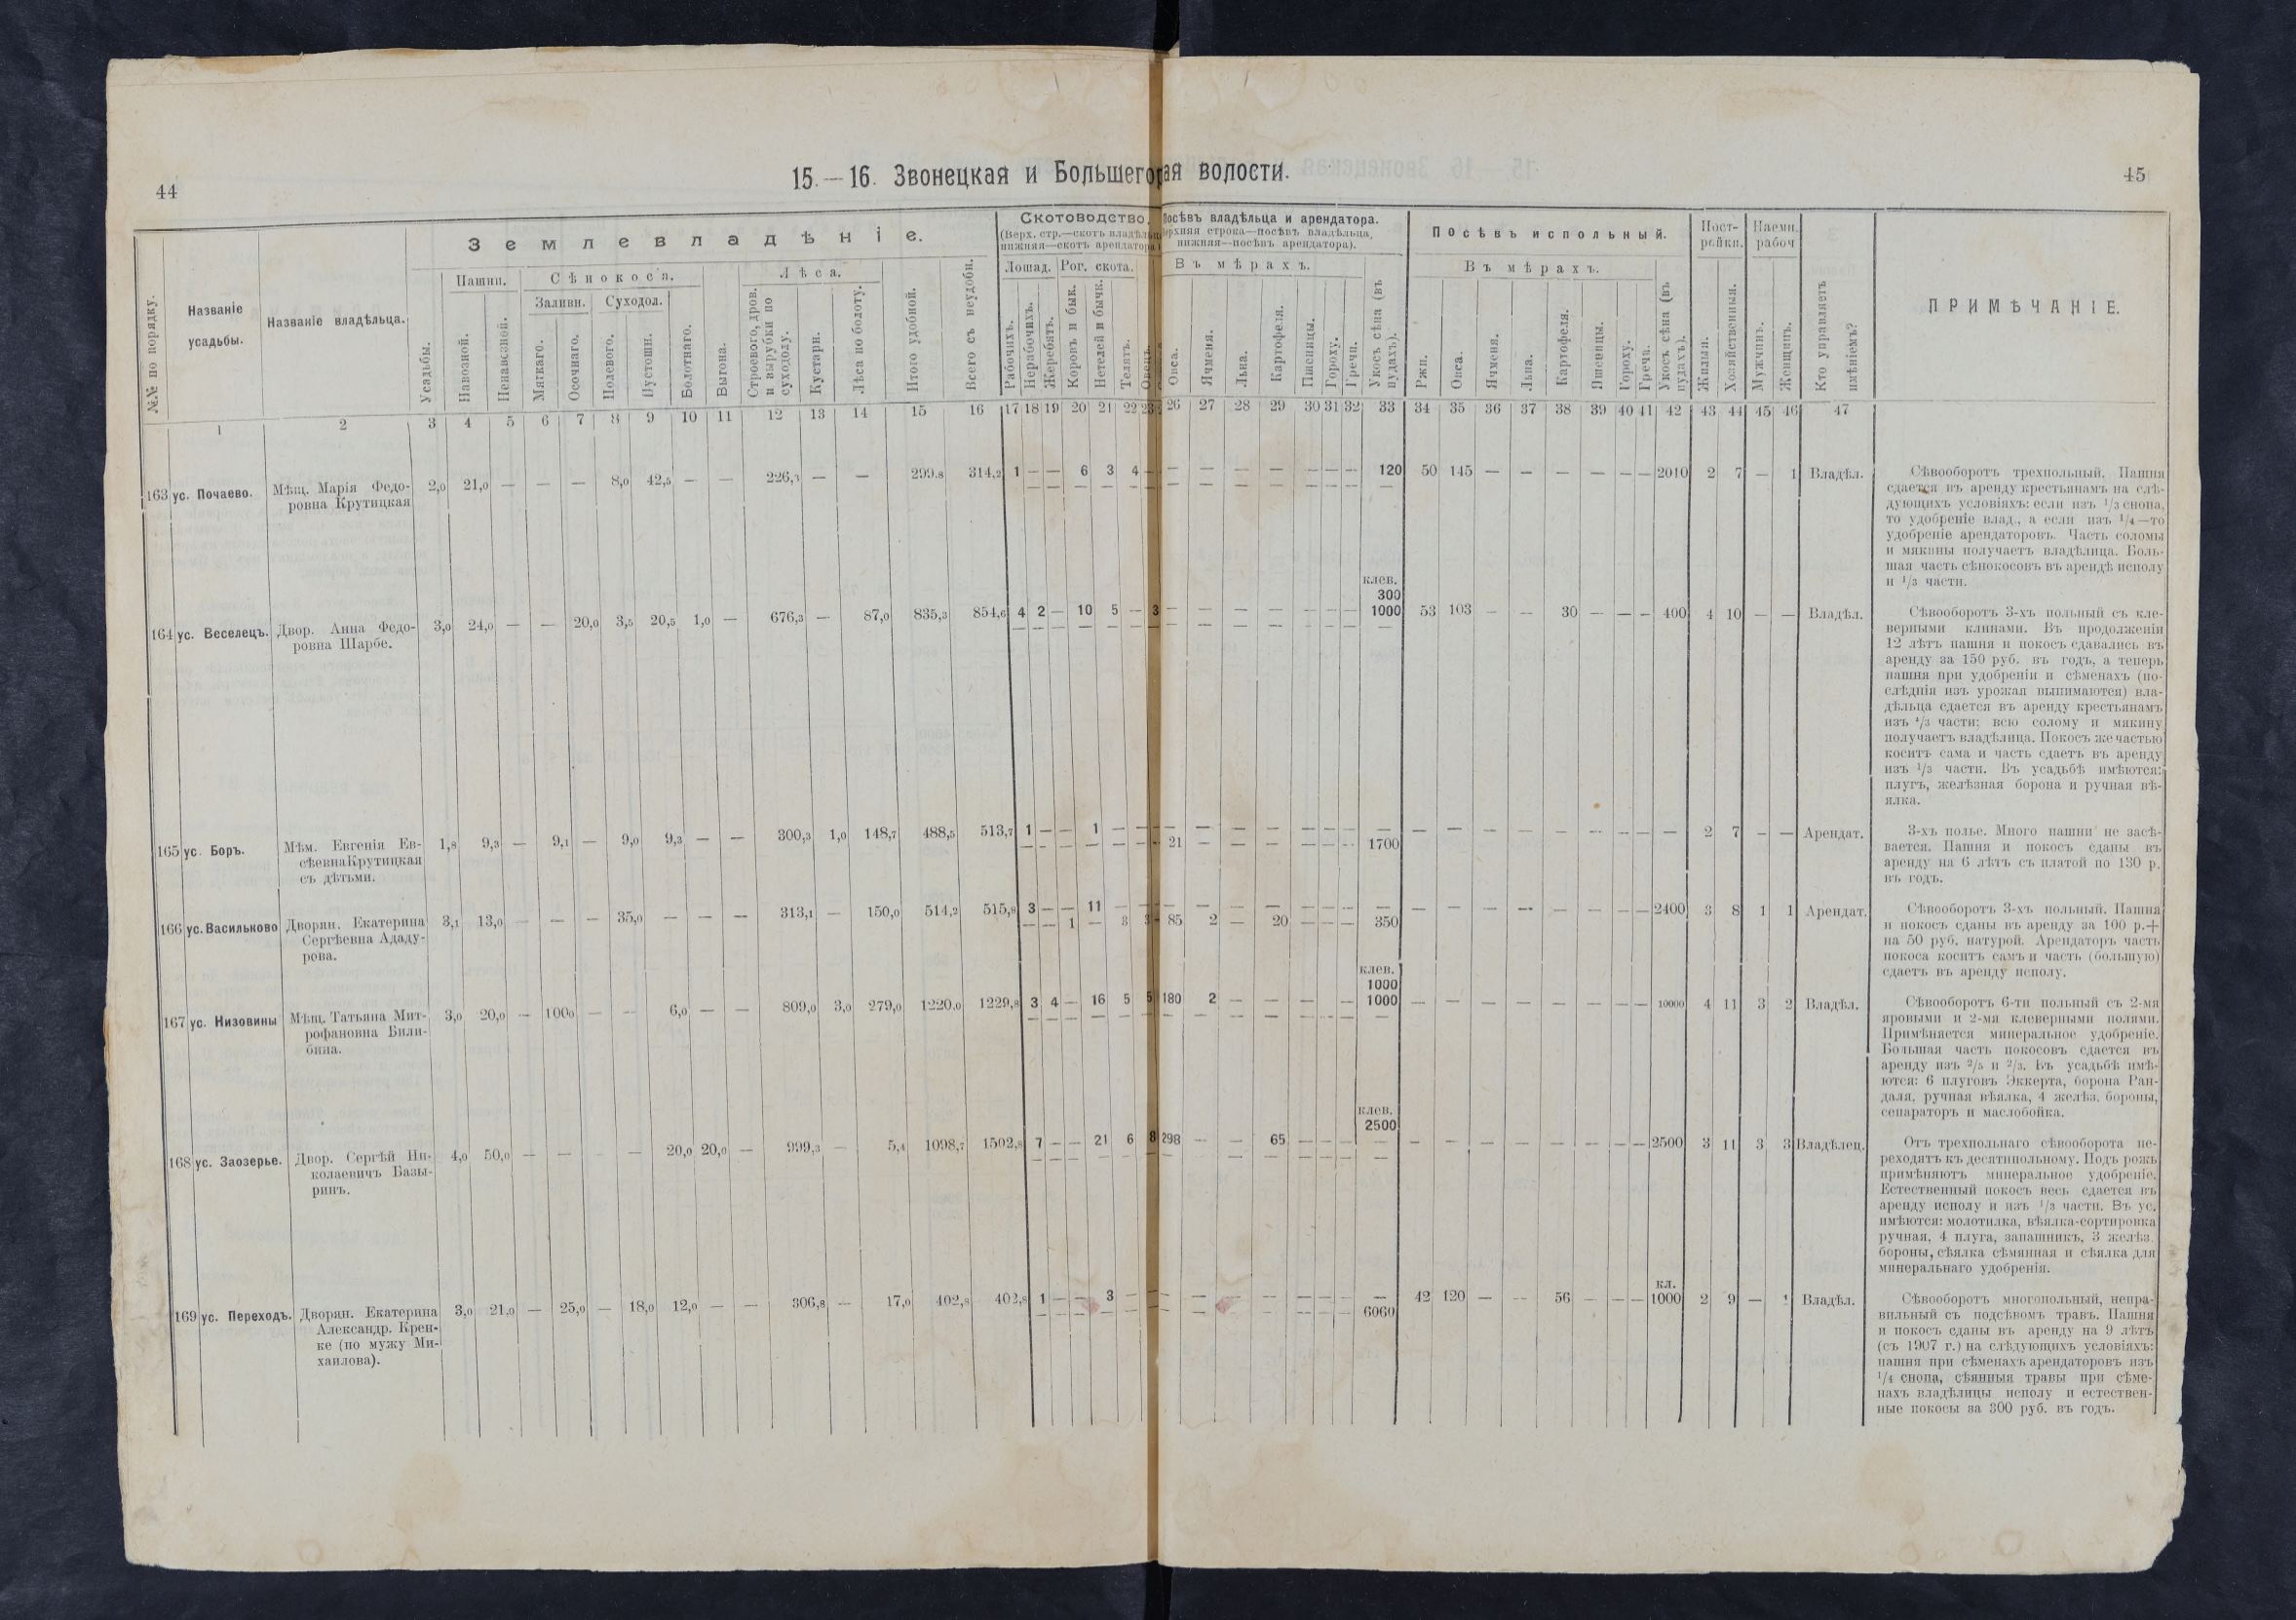 44
15.—16. Звонецкая и Большегорая волости.
45
№№ по порядку.
Названіе усадьбы.
Названіе владѣльца.
Землевладѣніе.
Усадьбы.
Пашни.
Навозной.
Ненавозной.
Сѣнокоса.
Заливн.
Мягкаго.
Осочнаго.
Суходол.
Полевого.
Пустошн.
Болотнаго.
Выгона.
Лѣса.
Строевого, дров. и вырубки по суходолу.
Кустарн.
Лѣса по болоту.
Итого удобной.
Всего съ неудобн.
Скотоводство.
(Верх. стр.—скотъ владѣльц
нижняя—скотъ арендатора
Лошад.
Рабочихъ.
Нерабочихъ.
Жеребятъ.
Рог. скота.
Коровъ и бык.
Нетелей и бычк.
Телятъ.
Овецъ.
Посѣвъ владѣльца и арендатора.
верхняя строка—посѣвъ владѣльца,
нижняя—посѣвъ арендатора).
Въ мѣрахъ.
Овса.
Ячменя.
Льна.
Картофеля.
Пшеницы.
Гороху.
Гречи.
Укосъ сѣна (въ пудахъ).
Посѣвъ испольный.
Въ мѣрахъ.
Ржи.
Овса.
Ячменя.
Льна.
Картофеля.
Пшеницы.
Гороху.
Греча.
Укосъ сѣна (въ пудахъ).
Пост-
ройки.
Жилыя.
Хозяйственныя.
Наемн.
рабоч
Мужчинъ.
Женщинъ.
Кто управляетъ имѣніемъ?
ПРИМѢЧАНІЕ.
1 2 3 4 5 6 7 8 9 10 11 12 13 14 15 16 17 18 19 20 21 22 23 26 27 28 29 30 31 32 33 34 35 36 37 38 39 40 41 42 43 44 45 46 47
163 ус. Почаево. Мѣщ. Марія Федо-
ровна Крутицкая
2,0 21,0 — — — 8,0 42,5 — — 226,3 — — 299,8 314,2 1 — — 6 3 4 — — — — — — — — 120 50 145 — — — — — — 2010 2 7 — 1 Владѣл.
Сѣвооборотъ трехпольный. Пашня
сдается въ аренду крестьянамъ на слѣ-
дующихъ условіяхъ: если изъ 1/3 снопа,
то удобреніе влад., а если изъ 1/4—то
удобреніе арендаторовъ. Часть соломы
и мякины получаетъ владѣлица. Боль-
шая часть сѣнокосовъ въ арендѣ исполу
и 1/3 части.
164 ус. Веселецъ. Двор. Анна Федо-
ровна Шарбе.
3,0 24,0 — — 20,0 3,5 20,5 1,0 — 676,3 — 87,0 835,3 854,6 4 2 — 10 5 — 3 — — — — — — —
клев.
300
1000
53 103 — — 30 — — — 400 4 10 — — Владѣл.
Сѣвооборотъ 3-хъ польный съ кле-
верными клинами. Въ продолженіи
12 лѣтъ пашня и покосъ сдавались въ
аренду за 150 руб. въ годъ, а теперь
пашня при удобреніи и сѣменахъ (по-
слѣднія изъ урожая вынимаются) вла-
дѣльца сдается въ аренду крестьянамъ
изъ 1/3 части; всю солому и мякину
получаетъ владѣлица. Покосъ же частью
коситъ сама и часть сдаетъ въ аренду
изъ 1/3 части. Въ усадьбѣ имѣются:
плугъ, желѣзная борона и ручная вѣ-
ялка.
165 ус. Боръ. Мѣм. Евгенія Ев-
сѣевна Крутицкая
съ дѣтьми.
1,8 9,3 — 9,1 — 9,0 9,3 — — 300,3 1,0 148,7 488,5 513,7 1 — — 1 — — — — — — — — — — —
21 — — — — — — 1700
— — — — — — — — — 2 7 — — Арендат.
3-хъ полье. Много пашни не засѣ-
вается. Пашня и покосъ сданы въ
аренду на 6 лѣтъ съ платой по 130 р.
въ годъ.
166 ус. Васильково Дворян. Екатерина
Сергѣевна Ададу-
рова.
3,1 13,0 — — — 35,0 — — — 313,1 — 150,0 514,2 515,8 3 — — 11 — — — — — — — — — — —
— — 1 — 3 3 85 2 — 20 — — — 350
— — — — — — — — 2400 3 8 1 1 Арендат.
Сѣвооборотъ 3-хъ польный. Пашня
и покосъ сданы въ аренду за 100 р.+
на 50 руб. натурой. Арендаторъ часть
покоса коситъ самъ и часть (большую)
сдаетъ въ аренду исполу.
167 ус. Низовины Мѣщ. Татьяна Мит-
рофановна Били-
бина.
3,0 20,0 — 100,0 — — 6,0 — — 809,0 3,0 279,0 1220,0 1229,8 3 4 — 16 5 5 180 2 — — — — —
клев.
1000
1000
— — — — — — — — 10000 4 11 3 2 Владѣл.
Сѣвооборотъ 6-ти польный съ 2-мя
яровыми и 2-мя клеверными полями.
Примѣняется минеральное удобреніе.
Большая часть покосовъ сдается въ
аренду изъ 2/5 и 2/3. Въ усадьбѣ имѣ-
ются: 6 плуговъ Эккерта, борона Ран-
даля, ручная вѣялка, 4 желѣз. бороны,
сепараторъ и маслобойка.
168 ус. Заозерье. Двор. Сергѣй Ни-
колаевичъ Базы-
ринъ.
4,0 50,0 — — — — 20,0 20,0 — 999,3 — 5,4 1098,7 1502,8 7 — — 21 6 8 298 — — 65 — — —
клев.
2500
— — — — — — — — — 2500 3 11 3 3 Владѣлец.
Отъ трехпольнаго сѣвооборота пе-
реходятъ къ десятипольному. Подъ рожь
примѣняютъ минеральное удобреніе.
Естественный покосъ весь сдается въ
аренду исполу и изъ 1/3 части. Въ ус.
имѣются: молотилка, вѣялка-сортировка
ручная, 4 плуга, запашникъ, 3 желѣз.
бороны, сѣялка сѣмянная и сѣялка для
минеральнаго удобренія.
169 ус. Переходъ. Дворян. Екатерина
Александр. Крен-
ке (по мужу Ми-
хаилова).
3,0 21,0 — 25,0 — 18,0 12,0 — — 306,8 — 17,0 402,8 402,8 1 — — 3 — — — — — — — — — —
6060
42 120 — — 56 — — —
кл.
1000 2 9 — 1 Владѣл.
Сѣвооборотъ многопольный, непра-
вильный съ подсѣвомъ травъ. Пашня
и покосъ сданы въ аренду на 9 лѣтъ
(съ 1907 г.) на слѣдующихъ условіяхъ:
пашня при сѣменахъ арендаторовъ изъ
1/4 снопа, сѣянныя травы при сѣме-
нахъ владѣлицы исполу и естествен-
ные покосы за 300 руб. въ годъ.